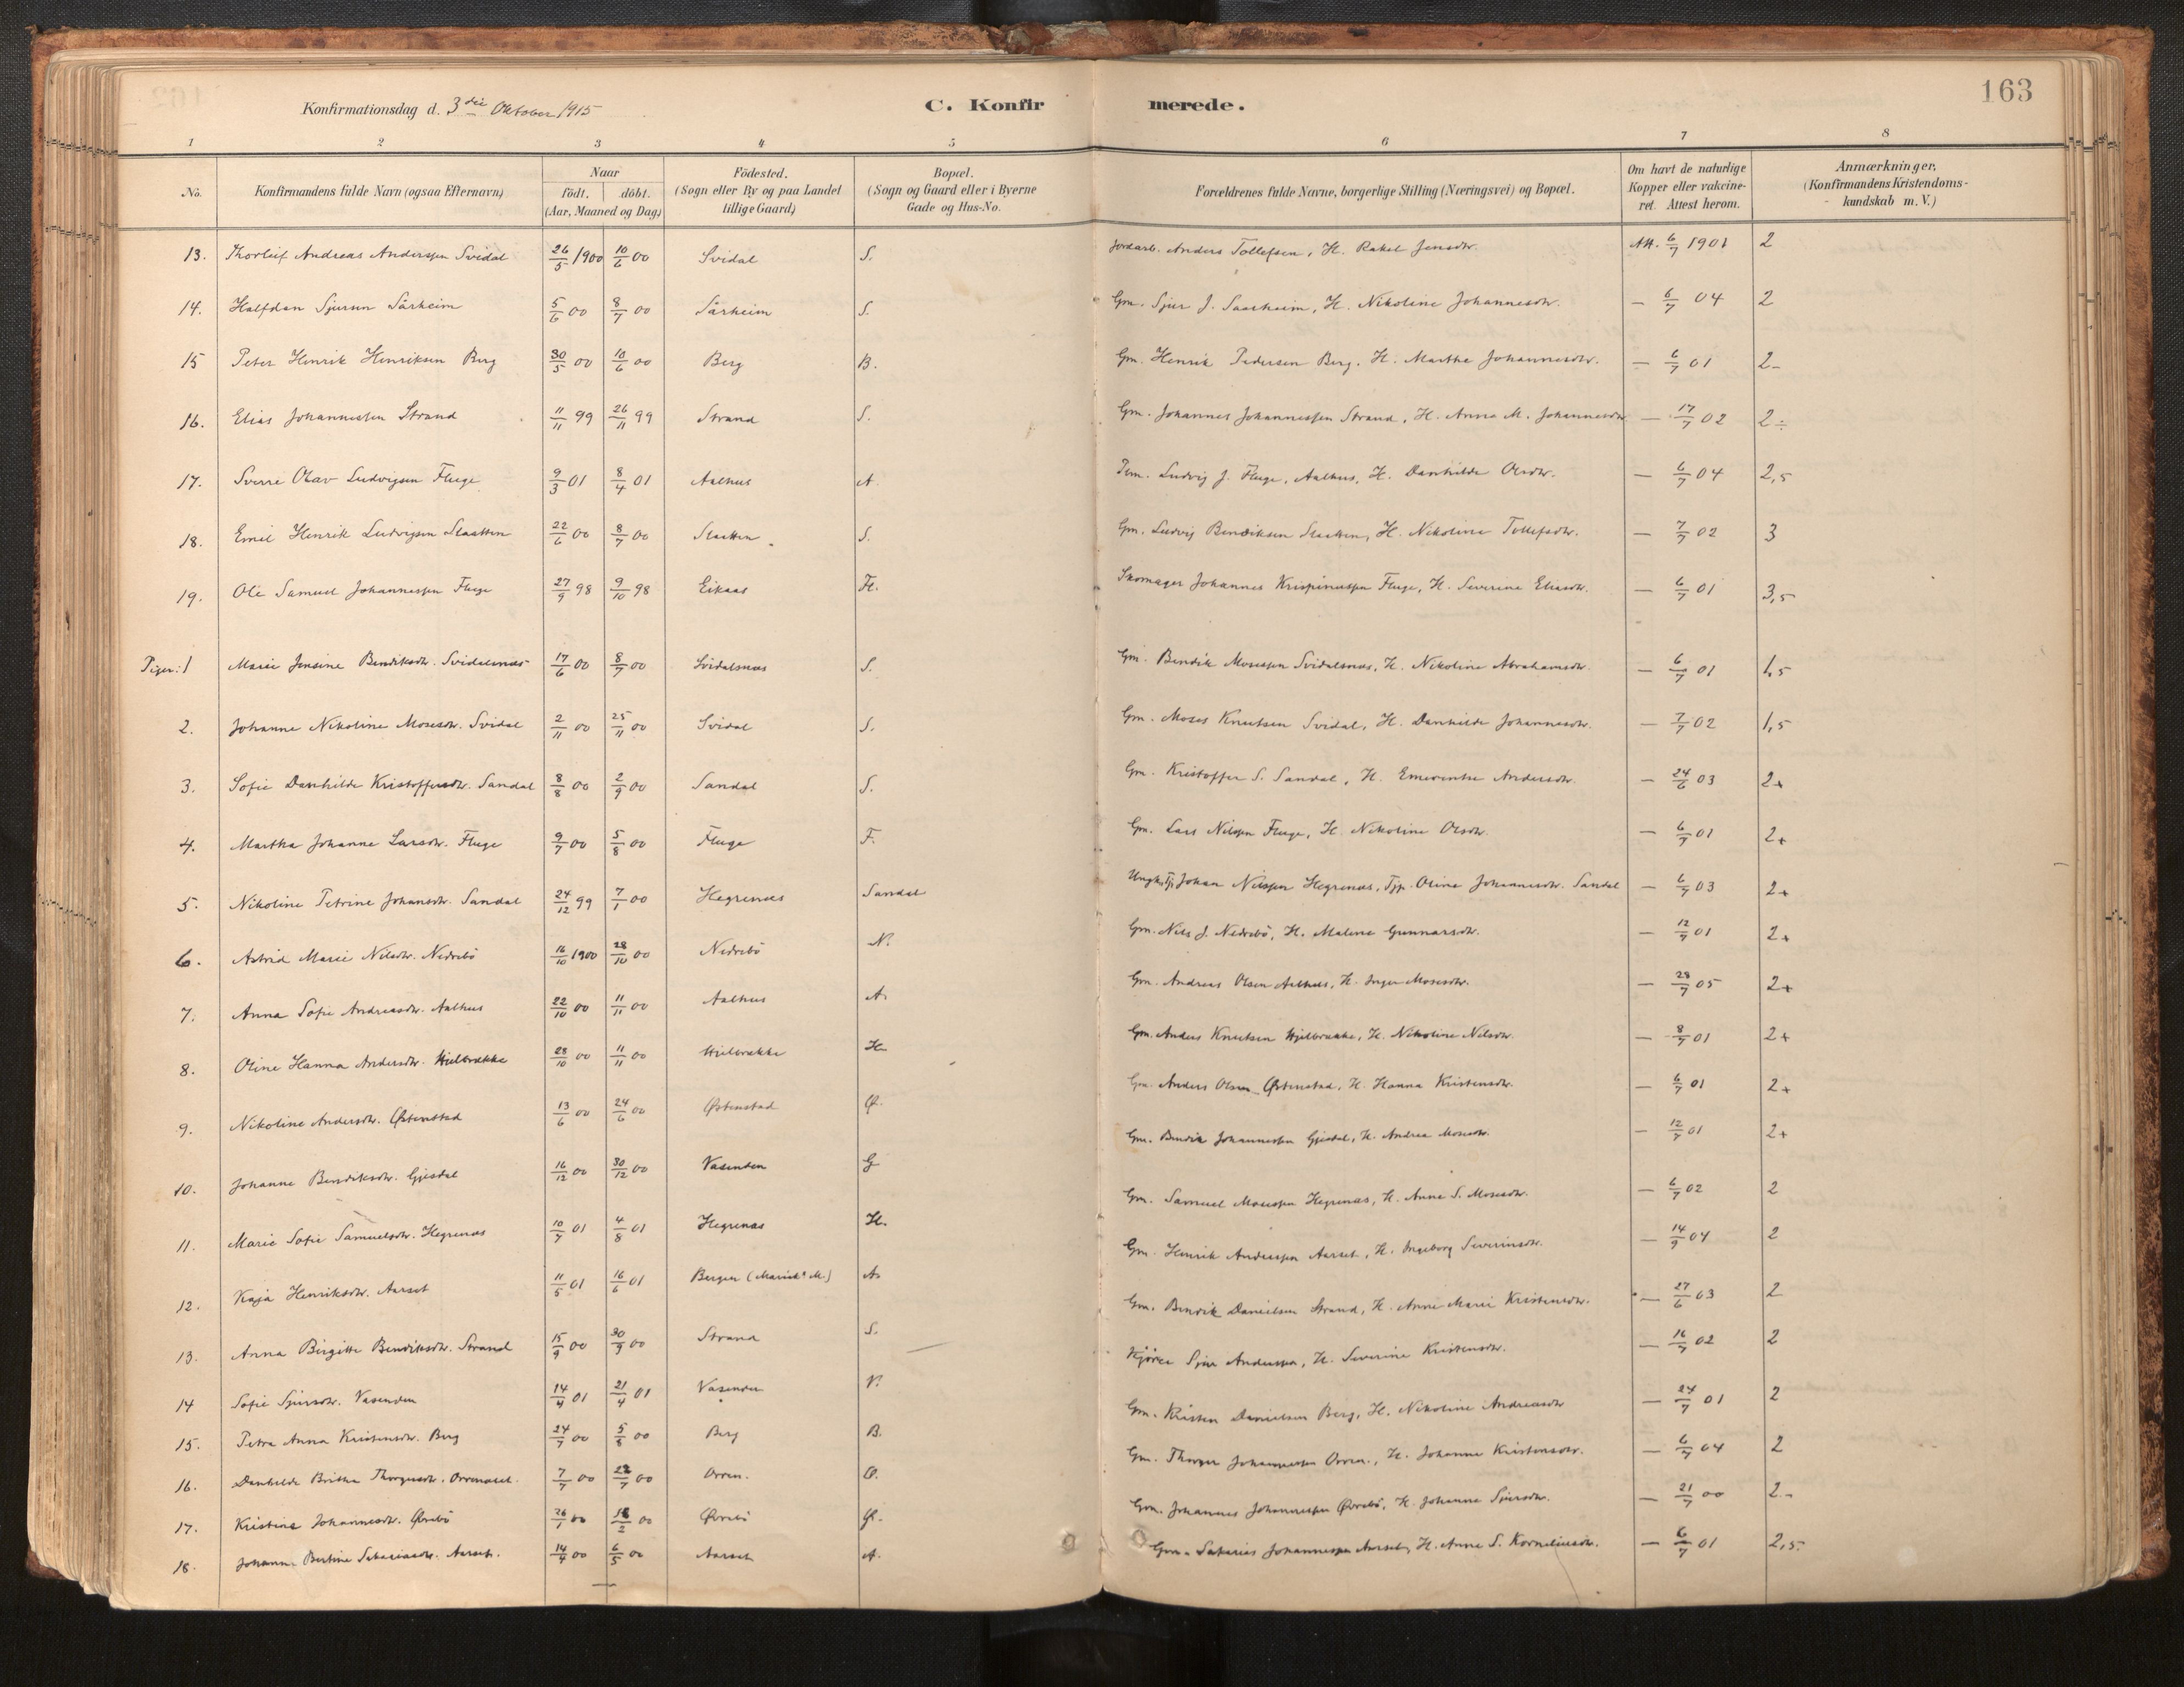 163
Konfirmationsdag d. 3die Oktober 1915
C. Konfirmerede.
1 2 3 4 5 6 7 8
No. Konfirmandens fulde Navn (ogsaa Efternavn) Naar födt. döbt. (Aar, Maaned og Dag) Födested. (Sogn eller By og paa Landet tillige Gaard) Bopæl. (Sogn og Gaard eller i Byerne Gade og Hus-No. Forældrenes fulde Navne, borgerlige Stilling (Næringsvei) og Bopæl. Om havt de naturlige Kopper eller vakcineret. Attest herom. Anmærkninger, (Konfirmandens Kristendomskundskab m. V.)
13. Thorleif Andreas Anderssen Svidal 26/5 1900 10/6 00 Svidal S. Jordarb. Anders Tollefsen, H. Rakel Jensdtr. Att. 6/7 1901 2
14. Halfdan Sjursen Sårheim 5/6 00 8/7 00 Sårheim S. Gm. Sjur J. Saarheim, H. Nikoline Johannesdtr. — 6/7 04 2
15 Peter Henrik Henriksen Berg 30/5 00 10/6 00 Berg B. Gm. Henrik Pedersen Berg, H. Marthe Johannesdtr. — 6/7 01 2-
16. Elias Johannessen Strand 11/11 99 26/11 99 Strand S. Gm. Johannes Johannessen Strand, H. Anna M. Johannesdtr — 17/7 02 2÷
17. Sverre Olav Ludvigsen Fluge 9/3 01 8/4 01 Aalhus A. Ludvig J. Fluge, Aalhus, H. Danhilde Olsdtr. — 6/7 04 2,5
18. Emil Henrik Ludvigsen Slaatten 22/6 00 8/7 00 Slaatten S. Gm. Ludvig Bendiksen Slaatten, H. Nikoline Tollefsdtr. — 7/7 02 3
19. Ole Samuel Johannessen Fluge 27/9 98 9/10 98 Eikaas Fl. Skomager Johannes Krispinussen Fluge, H. Severine Eliasdtr. — 6/7 01 3,5
Piger: 1 Marie Jensine Bendiksdtr. Svidalsnæs 17/6 00 8/7 00 Svidalsnæs S. Gm. Bendik Mosessen Svidalsnæs, H. Nikoline Abrahamsdtr. — 6/7 01 1,5
2. Johanne Nikoline Mosesdtr. Svidal 2/11 00 25/11 00 Svidal S. Gm. Moses Knutsen Svidal, H. Danhilde Johannesdtr. — 7/7 02 1,5
3. Sofie Danhilde Kristoffersdtr. Sandal 8/8 00 2/9 00 Sandal S. Gm. Kristoffer S. Sandal, H. Emerentse Andersdtr. — 24/6 03 2+
4. Martha Johanne Larsdtr. Fluge 9/7 00 5/8 00 Fluge F. Gm. Lars Nilssen Fluge, H. Nikoline Olsdtr. — 6/7 01 2+
5. Nikoline Petrine Johansdtr. Sandal 24/12 99 7/1 00 Hegrenæs Sandal Ungk. Tj. Johan Nilssen Hegrenæs, Tjp. Oline Johannesdtr. Sandal — 6/7 03 2+
6. Astrid Marie Nilsdtr. Nedrebö 16/10 1900 28/10 00 Nedrebö N. Gm. Nils J. Nedrebö, H. Malene Gunnarsdtr. — 12/7 01 2+
7. Anna Sofie Andreasdtr. Aalhus 22/10 00 11/11 00 Aalhus A. Gm. Andreas Olsen Aalhus, H. Inger Mosesdtr. — 28/7 05 2+
8. Oline Hanna Andersdtr. Hjelbrække 28/10 00 11/11 00 Hjelbrække H. Gm. Anders Knutsen Hjelbrække, H. Nikoline Nilsdtr. — 8/7 01 2+
9. Nikoline Andersdtr. Østenstad 13/6 00 24/6 00 Østenstad Ø. Gm. Anders Olsen Østenstad, H. Hanna Kristensdtr. — 6/7 01 2+
10. Johanne Bendiksdtr. Gjesdal 16/12 00 30/12 00 Vasenden G Gm. Bendik Johannessen Gjesdal, H. Andrea Mosesdtr. — 12/7 01 2+
11. Marie Sofie Samuelsdtr. Hegrenæs 10/7 01 4/8 01 Hegrenæs H. Gm. Samuel Mosessen Hegrenæs, H. Anne S. Mosesdtr. — 6/7 02 2
12. Kaja Henriksdtr. Aarset 11/5 01 16/6 01 Bergen (Marieks M.) A. Gm. Henrik Anderssen Aarset, H. Ingeborg Severinsdtr. — 14/9 04 2
13. Anna Birgitte Bendiksdtr. Strand 15/9 00 30/9 00 Strand S. Gm. Bendik Danielsen Strand, H. Anne Marie Kristensdtr. — 27/6 03 2
14 Sofie Sjursdtr. Vasenden 14/4 01 21/4 01 Vasenden V. Sjur Anderssen, H. Severine Kristensdtr. — 16/7 02 2
15. Petra Anna Kristensdtr. Berg 24/7 00 5/8 00 Berg B. Gm. Kristen Danielsen Berg, H. Nikoline Andreasdtr — 24/7 01 2
16. Danhilde Britha Thorgersdtr. Orrenæset. 7/7 00 22/7 00 Orren. O. Gm. Thorger Johannessen Orren., H. Johanne Kristensdtr. — 6/7 04 2
17. Kristine Johannesdtr. Øvrebö 26/1 00 18/2 00 Øvrebö Ø. Gm. Johannes Johannessen Øvrebö, H. Johanne Sjursdtr. — 21/7 00 2-
18. Johanne Bertine Sakariasdtr. Aarset. 14/4 00 6/5 00 Aarset A. Gm. Sakarias Johannessen Aarset, H. Anne S. Korneliusdtr. — 6/7 01 2,5.